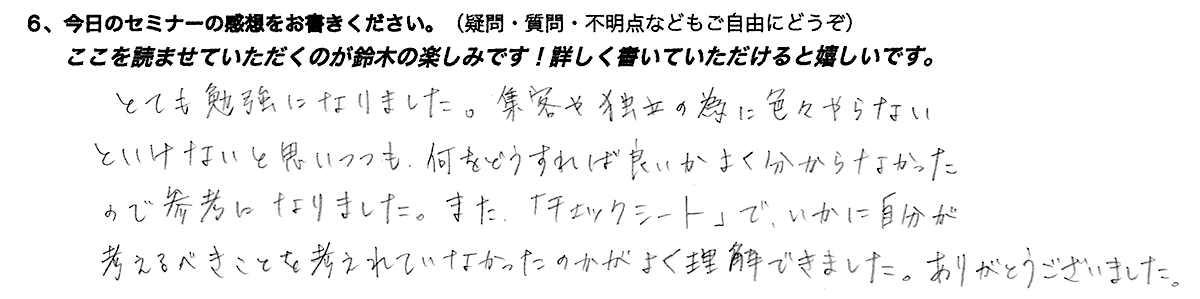 6、今日のセミナーの感想をお書きください。（疑問・質問・不明点などもご自由にどうぞ）
ここを読ませていただくのが鈴木の楽しみです！詳しく書いていただけると嬉しいです。
とても勉強になりました。集客や独立の為に色々やらない
といけないと思いつつも、何をどうすれば良いかよく分からなかった
ので参考になりました。また、「チェックシート」で、いかに自分が
考えるべきことを考えれていなかったのかがよく理解できました。ありがとうございました。